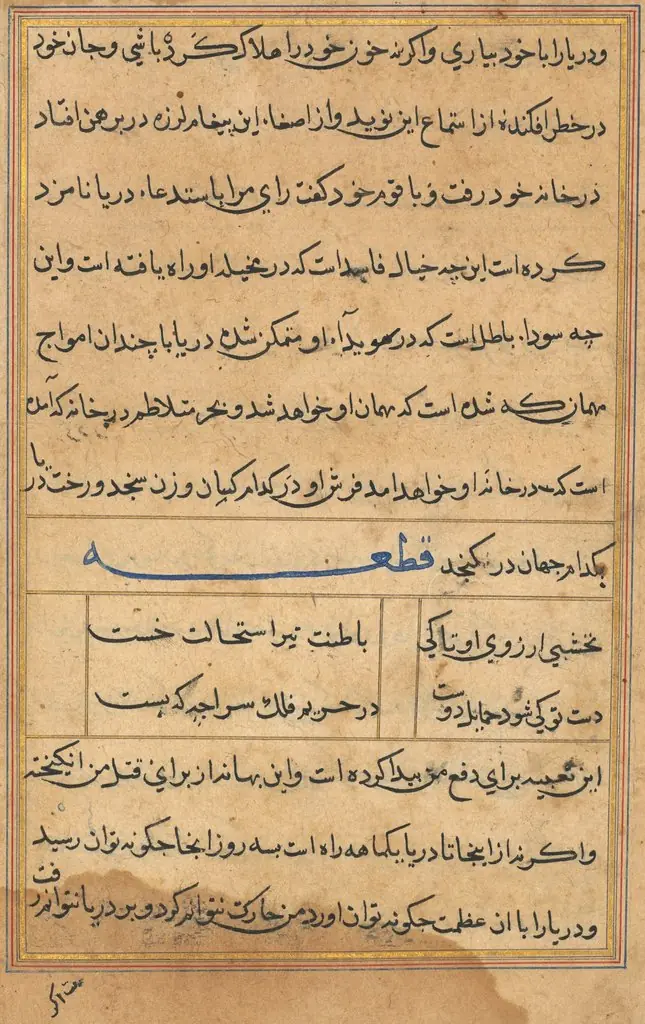 ودریارا با خود بیاري واکرنه خون خود را هلاک کرده باشي وجان خود
در خطر افکنده از استماع این نوید واز اصغاء این پیغام لرزه در برهمن افتاد
در خانه خود رفت و با قوم خود کفت راي مرا باستدعاء دریا نامزد
کرده است این چه خیال فاسد است که در مخیله او راه یافته است واین
چه سوداء باطل است که در سویداء او متمکن شده دریا با چندان امواج
مهمان که شده است که مهمان او خواهد شد و بحر متلاطم در خانه که آمده
است که در خانه او خواهد امد فرش او در کدام کپان وزن سنجد و رخت دریا
بکدام جهان در کنجد قطعه
نخشبي ارزوي او تا کي باطنت تیر استحالت خست
دست تو کي شود حمایل دوست در حریم فلک سراجه که بست
این تعبیه براي دفع من پیدا کرده است واین بهانه از براي قتل من انکیخته
واکرنه از اینجا تا دریا یکماهه راه است بسه روز انجا چکونه توان رسید
ودریارا با ان عظمت چکونه توان اورد من حارکت نتوانم کرد و بر دریا نتوانم رفت